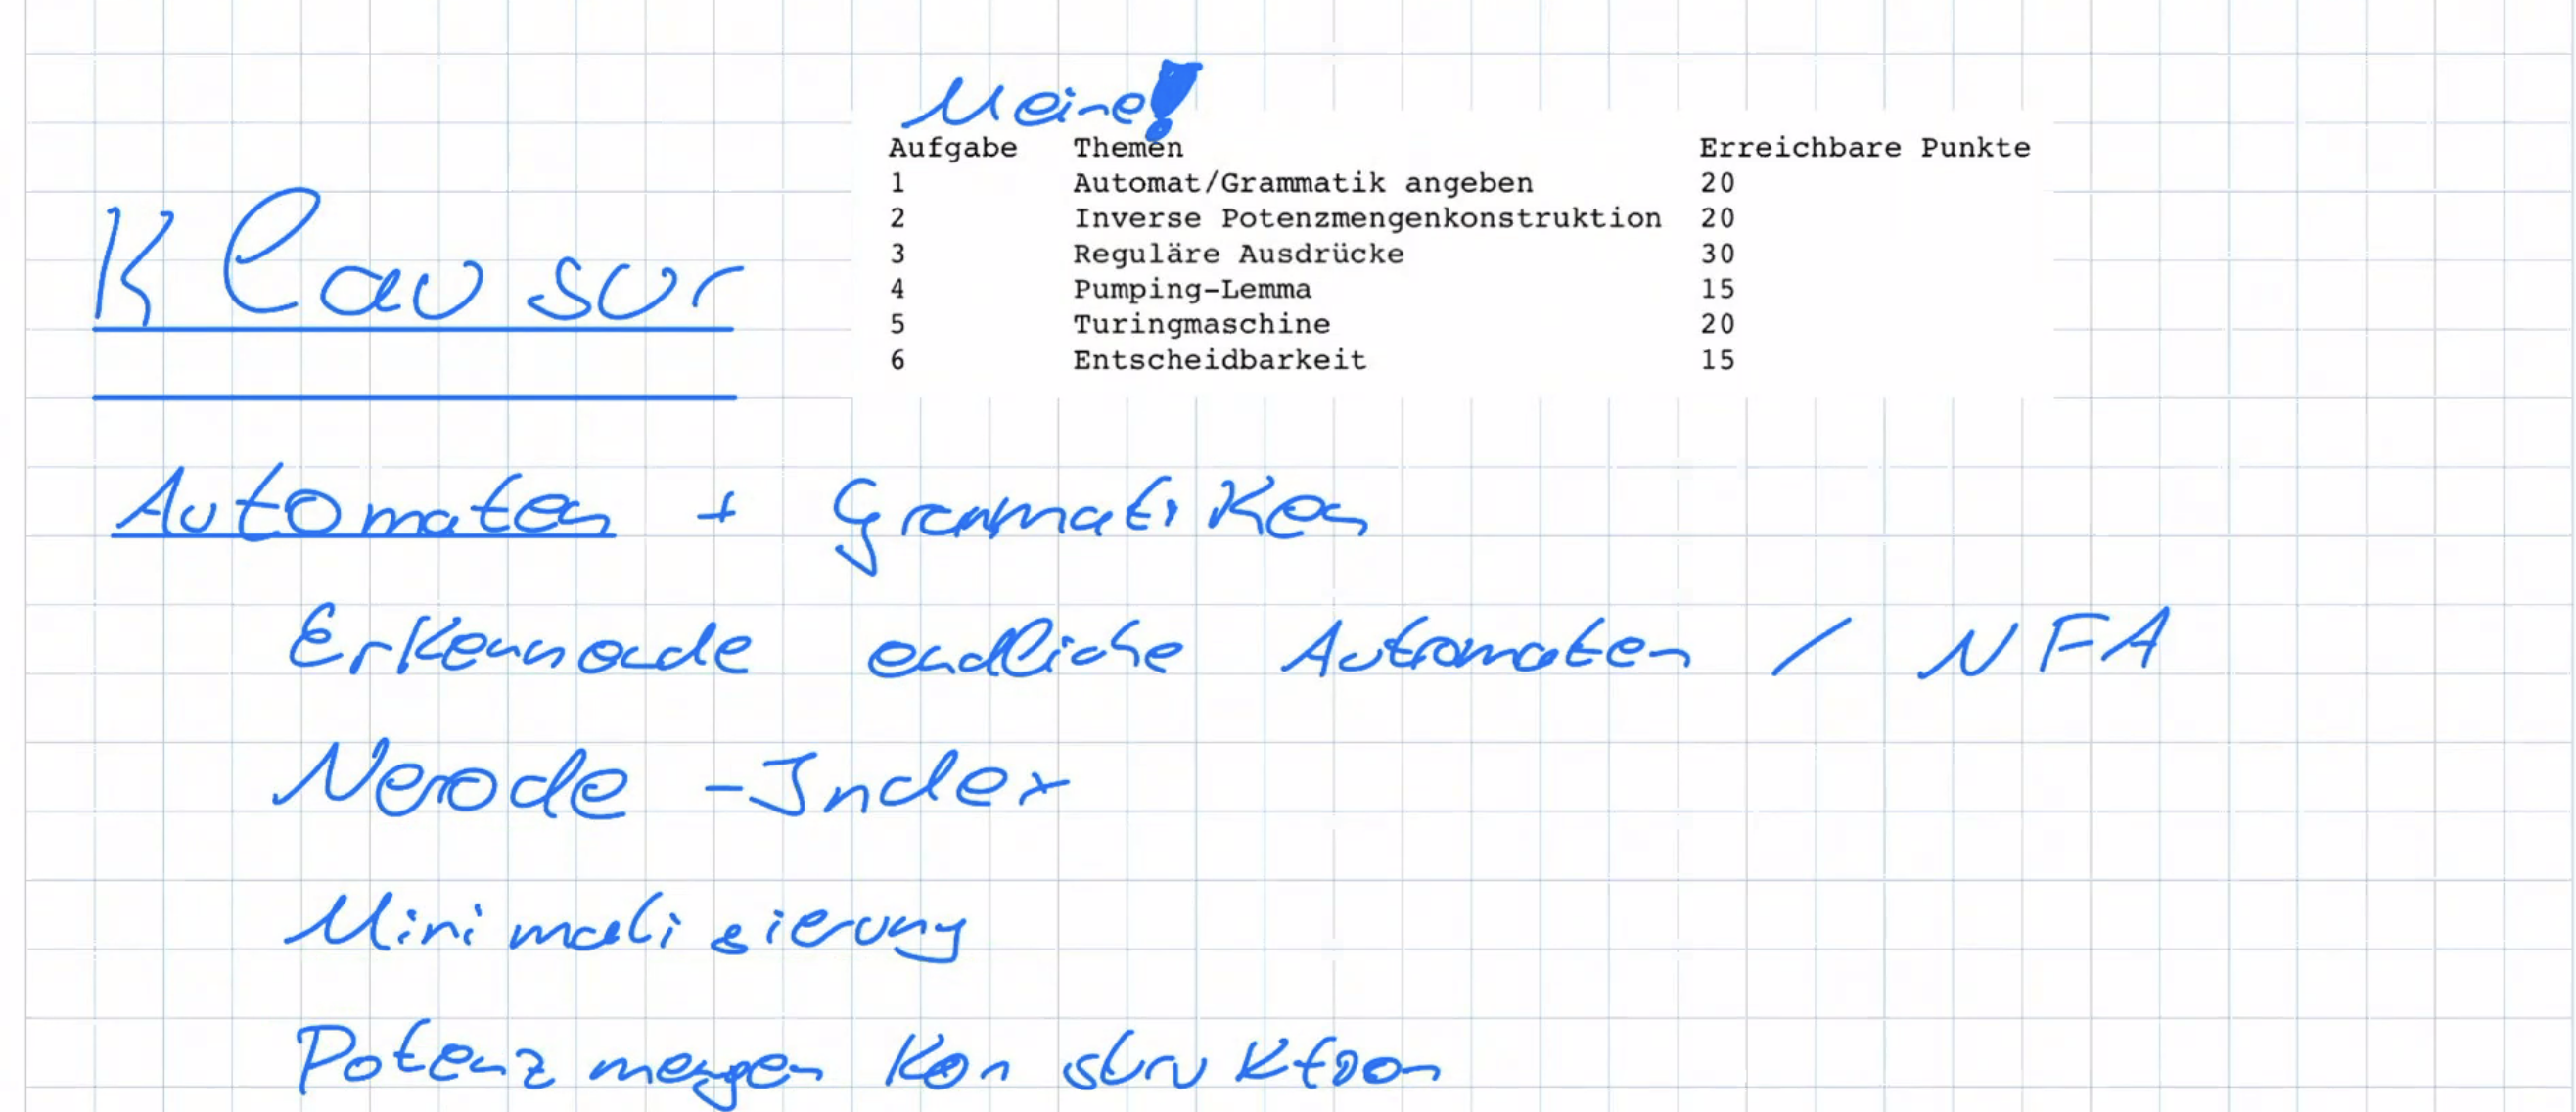 Meine!
Aufgabe Themen Erreichbare Punkte
1 Automat/Grammatik angeben 20
2 Inverse Potenzmengenkonstruktion 20
3 Reguläre Ausdrücke 30
4 Pumping-Lemma 15
5 Turingmaschine 20
6 Entscheidbarkeit 15
Klausur
Automaten + Grammatiken
Erkennende endliche Automaten / NFA
Nerode-Index
Minimalisierung
Potenzmengen Konstruktion